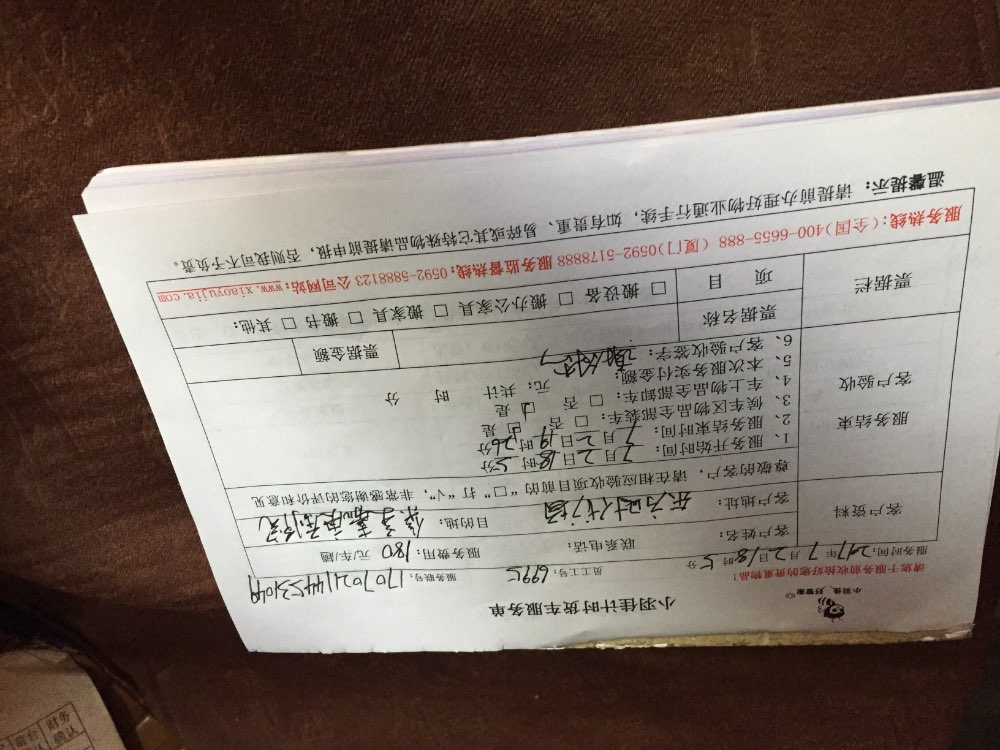 小羽佳，好管家
小羽佳计时货车服务单
请您于服务前收拾好您的贵重物品！
员工号：6995
服务联号：17070211453104
服务时间：2017年7月2日18时5分
客户资料
客户姓名：
联系电话：
服务费用：180元/车/趟
客户地址：东方时代广场
目的地：
尊敬的客户，请在相应验收项目前的“□”打“√”，非常感谢您的评价和意见
服务结束
客户验收
1、服务开始时间：7月2日18时5分
2、服务结束时间：7月2日19时26分
3、候车区物品全部装车：□否 □是
4、车上物品全部卸车：□否 □是
5、本次服务实付金额： 元；共计 时 分
6、客户验收签字：
票据栏
票据名称
票据金额
项 目
□搬设备 □搬办公家具 □搬家具 □搬书 □其他：
服务热线：(全国)400-6655-888 (厦门)0592-5178888 服务监督热线：0592-5888123 公司网站：www.xiaoyujia.com
温馨提示： 请提前办理好物业通行手续，如有贵重、易碎或其它特殊物品请提前申报，否则我司不予负责。